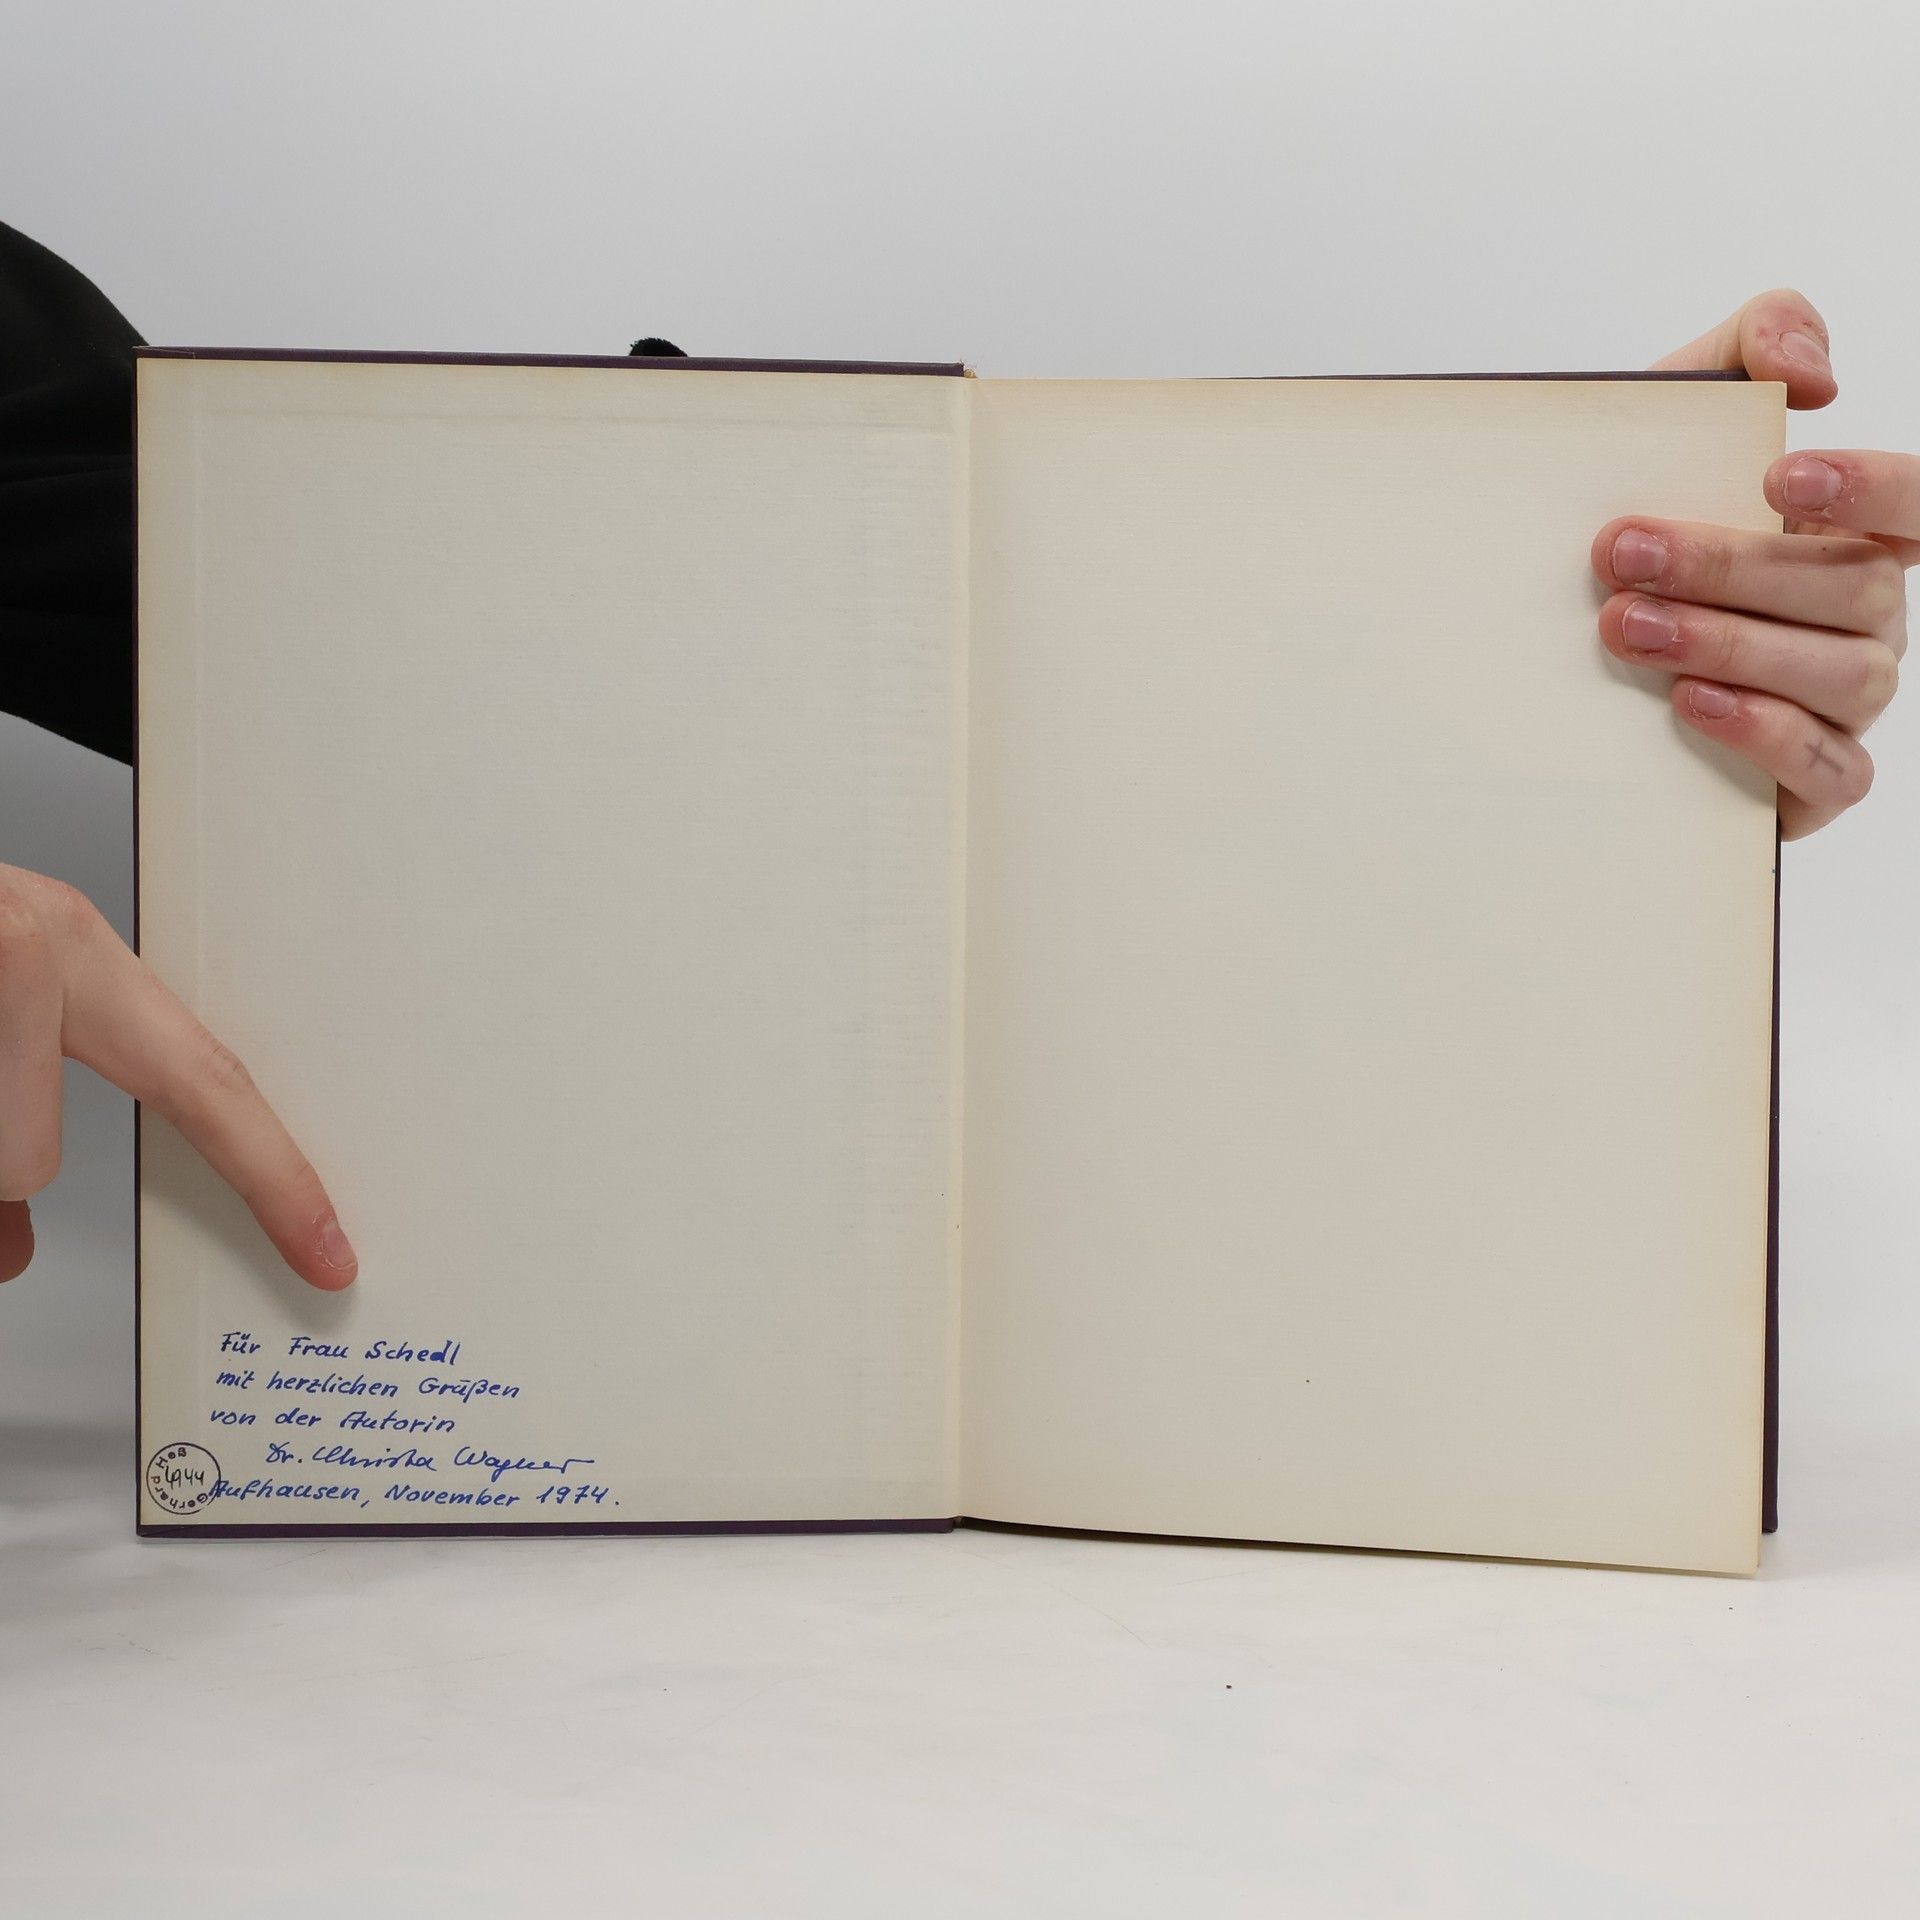 Für Frau Schedl
mit herzlichen Grüßen
von der Autorin
Dr. Christa Wagner
Aufhausen, November 1974.
Gerhard Heß
4944